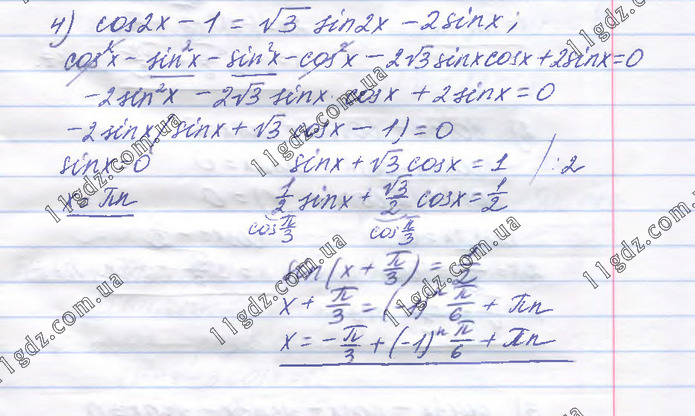 4) cos2x − 1 = √3 sin2x − 2sinx;
cos²x − sin²x − sin²x − cos²x − 2√3 sinxcosx + 2sinx = 0
−2sin²x − 2√3 sinx · cosx + 2sinx = 0
−2sinx(sinx + √3 cosx − 1) = 0
sinx = 0
sinx + √3 cosx = 1 / :2
x = πn
1/2 sinx + √3/2 cosx = 1/2
cos π/3
cos π/3
sin(x + π/3) = 1/2
x + π/3 = (−1)ⁿ π/6 + πn
x = −π/3 + (−1)ⁿ π/6 + πn
11gdz.com.ua
11gdz.com.ua
11gdz.com.ua
11gdz.com.ua
11gdz.com.ua
11gdz.com.ua